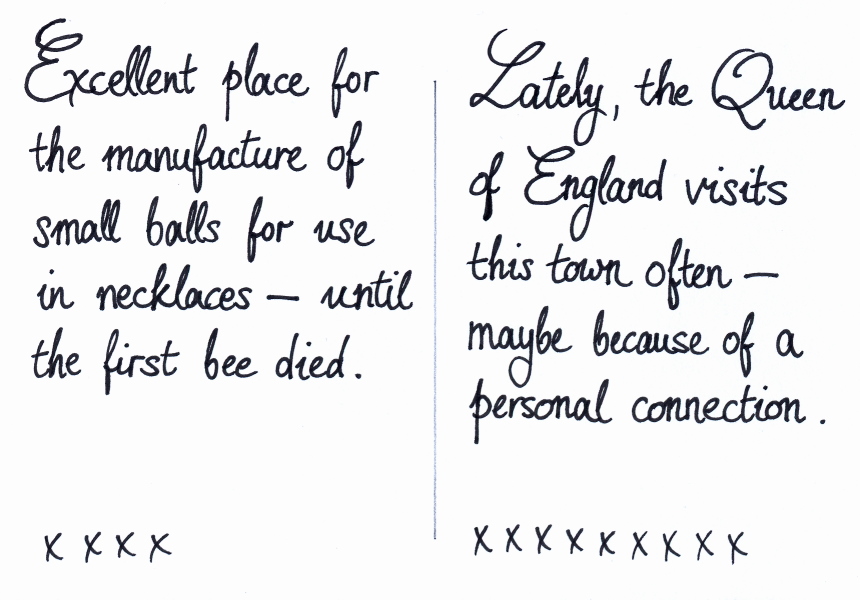 Excellent place for
the manufacture of
small balls for use
in necklaces — until
the first bee died.
x x x x
Lately, the Queen
of England visits
this town often —
maybe because of a
personal connection.
x x x x x x x x x